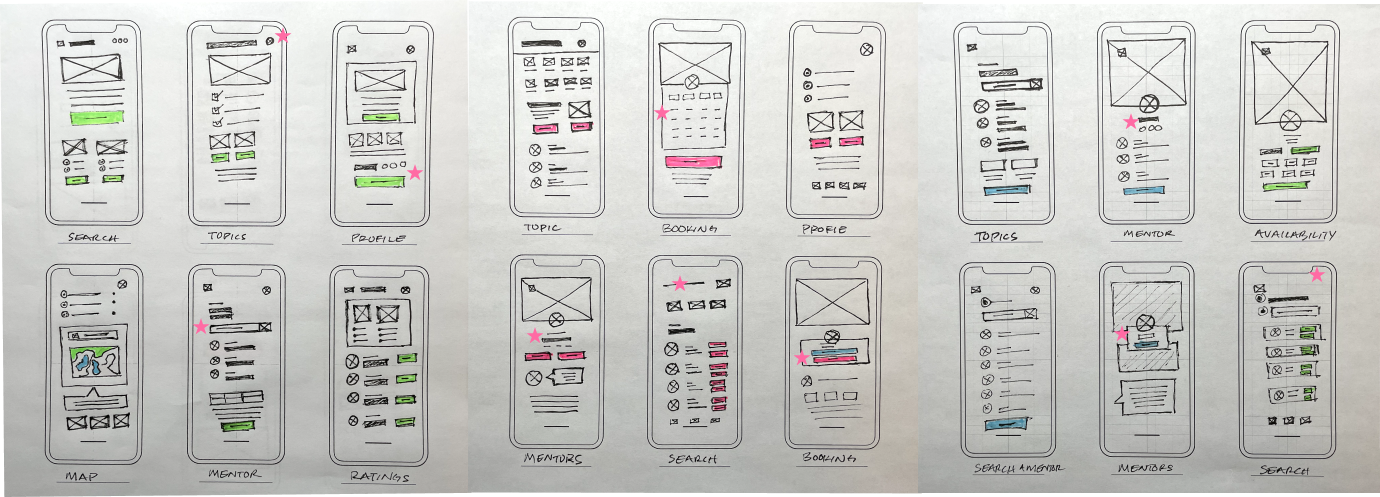 SEARCH
TOPICS
PROFILE
MAP
MENTOR
RATINGS
TOPIC
BOOKING
PROFIE
MENTORS
SEARCH
BOOKING
TOPICS
MENTOR
AVAILABILITY
SEARCH A MENTOR
MENTORS
SEARCH